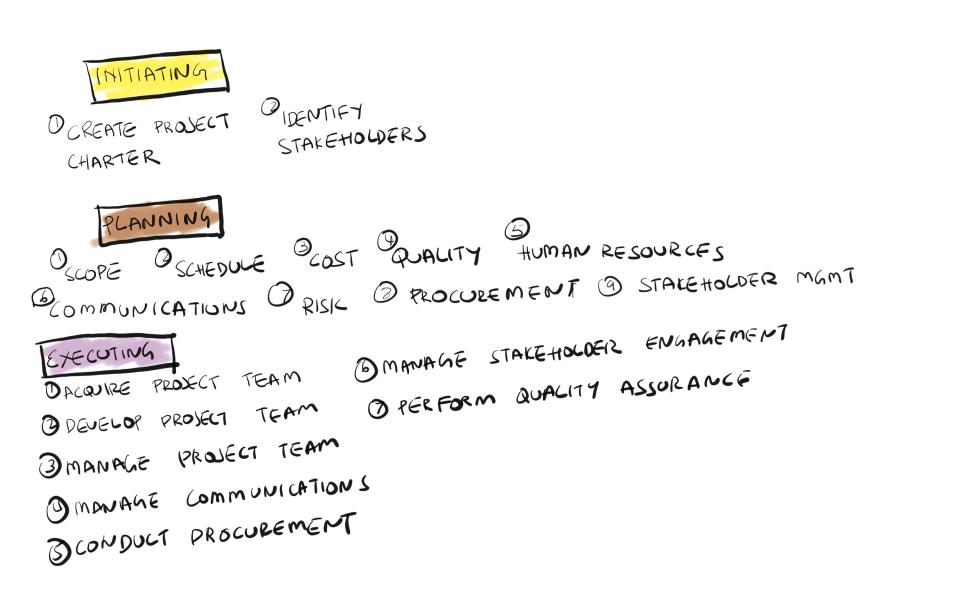 INITIATING
① CREATE PROJECT CHARTER
② IDENTIFY STAKEHOLDERS
PLANNING
① SCOPE ② SCHEDULE ③ COST ④ QUALITY ⑤ HUMAN RESOURCES
⑥ COMMUNICATIONS ⑦ RISK ⑧ PROCUREMENT ⑨ STAKEHOLDER MGMT
EXECUTING
① ACQUIRE PROJECT TEAM
② DEVELOP PROJECT TEAM
③ MANAGE PROJECT TEAM
④ MANAGE COMMUNICATIONS
⑤ CONDUCT PROCUREMENT
⑥ MANAGE STAKEHOLDER ENGAGEMENT
⑦ PERFORM QUALITY ASSURANCE